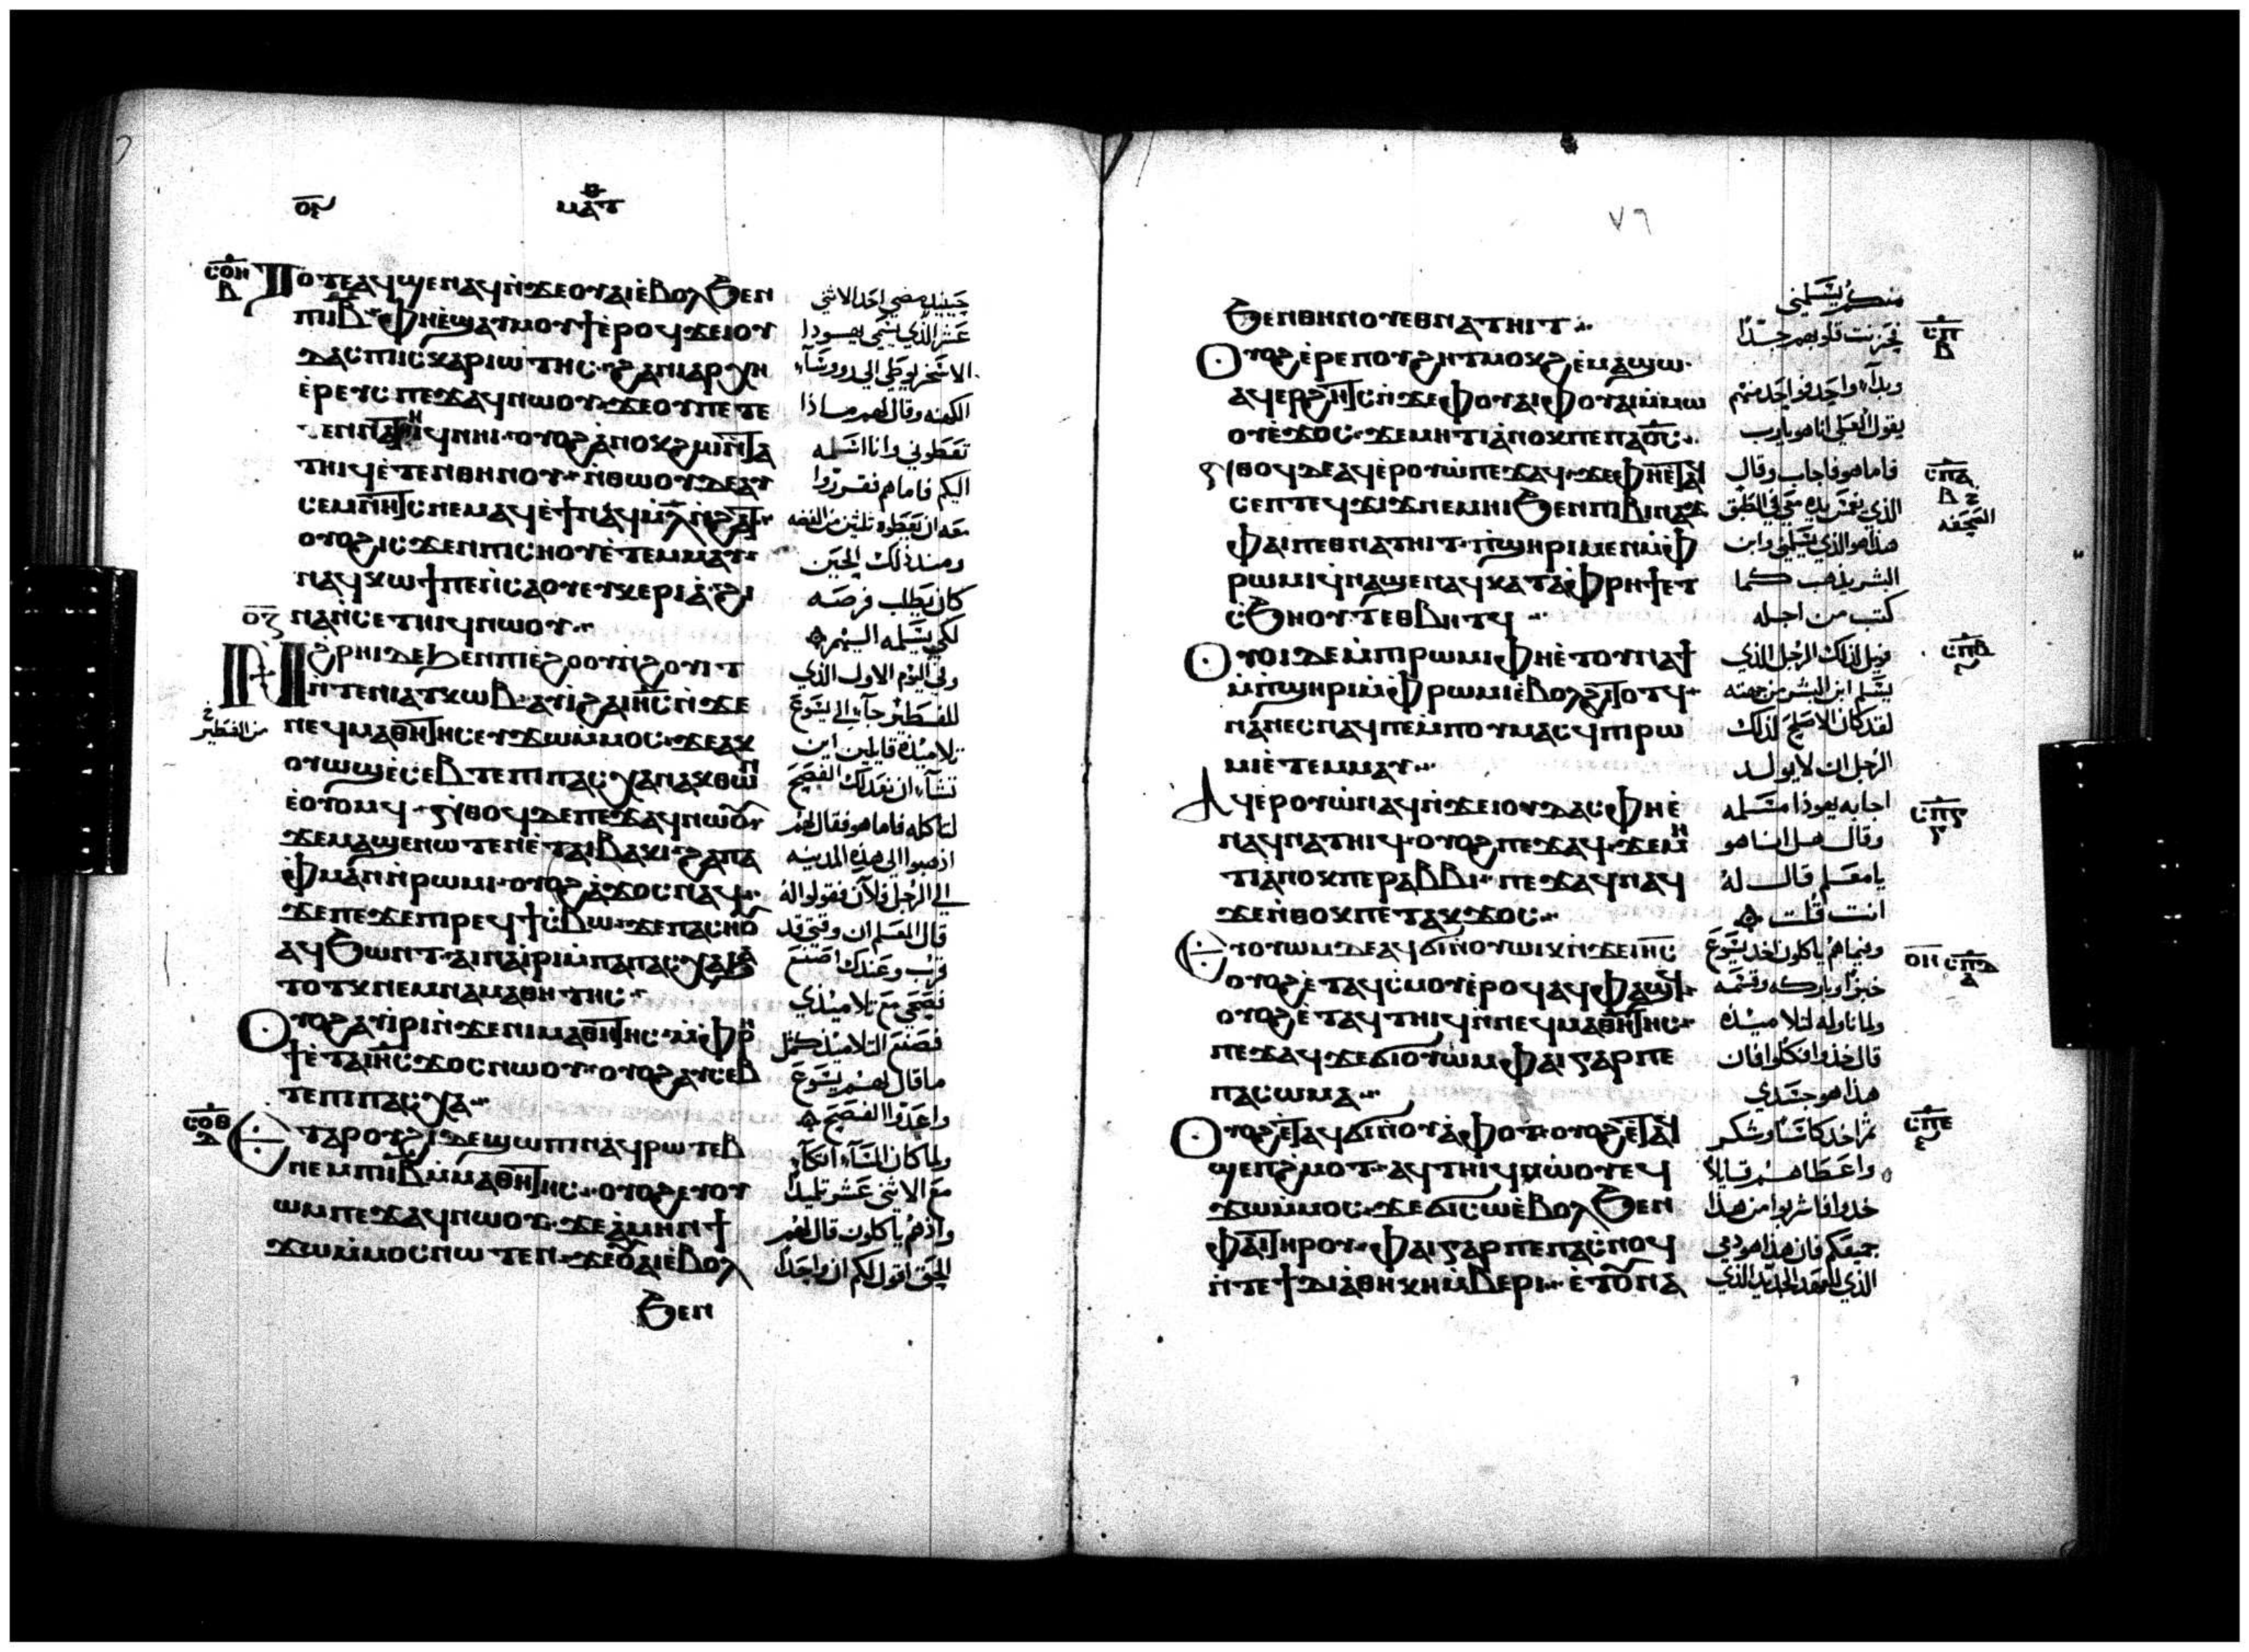 ⲟⲉ
ⲙⲁⲧ
ⲥⲟⲏ
ⲃ
Ⲧⲟⲧⲉ ⲁϥϣⲉⲛⲁϥ ⲛ̀ϫⲉⲟⲩⲁⲓ ⲉ̀ⲃⲟⲗ ϧⲉⲛ
ⲡⲓⲓ̅ⲃ̅ ⲫⲏⲉ̀ϣⲁⲩⲙⲟⲩϯ ⲉ̀ⲣⲟϥ ϫⲉⲓⲟⲩ
ⲇⲁⲥ ⲡⲓⲥⲕⲁⲣⲓⲱⲧⲏⲥ ϩⲁⲛⲓⲁⲣⲭⲏ
ⲉ̀ⲣⲉⲩⲥ ⲡⲉϫⲁϥ ⲛⲱⲟⲩ ϫⲉⲟⲩⲡⲉⲧⲉ
ⲧⲉⲛⲛⲁⲧⲏⲓϥ ⲛⲏⲓ ⲟⲩⲟϩ ⲁ̀ⲛⲟⲕ ϩⲙⲓⲛⲧⲁ
ⲧⲏⲓϥ ⲉ̀ⲧⲉⲛⲑⲏⲛⲟⲩ ⲛ̀ⲑⲱⲟⲩ ⲇⲉ ⲁⲩ
ⲥⲉⲙⲛⲏⲧⲥ ⲛⲉⲙⲁϥ ⲉ̀ϯ ⲛⲁϥ ⲙ̀ⲗ̅ ⲛ̀ϩⲁⲧ
ⲟⲩⲟϩ ⲓⲥϫⲉⲛ ⲡⲓⲥⲏⲟⲩ ⲉ̀ⲧⲉⲙⲙⲁⲩ
ⲛⲁϥⲕⲱϯ ⲡⲉ ⲛ̀ⲥⲁ ⲟⲩⲉⲩⲕⲉⲣⲓⲁ̀ ϩⲓ
ⲛⲁ ⲛ̀ⲥⲉⲧⲏⲓϥ ⲛⲱⲟⲩ
ⲟⲍ
Ⲛ̀ϩⲣⲏⲓ ⲇⲉ ϧⲉⲛ ⲡⲓⲉ̀ϩⲟⲟⲩ ⲛ̀ϩⲟⲩⲓⲧ
ⲛ̀ⲧⲉ ⲛⲓⲁⲧⲕⲱⲃ ⲁⲩⲓ̀ ϩⲁ ⲓⲏⲥ ⲛ̀ϫⲉ
ⲛⲉϥⲙⲁⲑⲏⲧⲏⲥ ⲉⲩϫⲱⲙ̀ⲙⲟⲥ ϫⲉⲁⲕ
ⲟⲩⲱϣ ⲉ̀ⲥⲉⲃⲧⲉ ⲡⲓⲡⲁⲥⲭⲁ ⲛⲁⲕ ⲑⲱⲛ
ⲉ̀ⲟⲩⲟⲙϥ ⲛ̀ⲑⲟϥ ⲇⲉ ⲡⲉϫⲁϥ ⲛⲱⲟⲩ
ϫⲉⲙⲁϣⲉⲛⲱⲧⲉⲛ ⲉ̀ⲧⲁⲓⲃⲁⲕⲓ ϩⲁ ⲡⲁ
ⲫⲙⲁⲛ ⲛ̀ⲣⲱⲙⲓ ⲟⲩⲟϩ ⲁ̀ϫⲟⲥ ⲛⲁϥ
ϫⲉⲡⲉϫⲉ ⲡⲓⲣⲉϥϯⲥ̀ⲃⲱ ϫⲉⲡⲁⲥⲏⲟⲩ
ⲁϥϧⲱⲛⲧ ⲁⲓⲛⲁⲓ̀ⲣⲓ ⲙ̀ⲡⲁⲡⲁⲥⲭⲁ ϧⲁ
ⲧⲟⲧⲕ ⲛⲉⲙ ⲛⲁⲙⲁⲑⲏⲧⲏⲥ
Ⲟⲩⲟϩ ⲁⲩⲓ̀ⲣⲓ ⲛ̀ϫⲉⲛⲓⲙⲁⲑⲏⲧⲏⲥ ⲙ̀ⲫⲣⲏ
ϯ ⲉ̀ⲧⲁ ⲓⲏⲥ ϫⲟⲥ ⲛⲱⲟⲩ ⲟⲩⲟϩ ⲁⲩⲥⲉⲃ
ⲧⲉ ⲡⲓⲡⲁⲥⲭⲁ
ⲥⲟⲑ
ⲇ
Ⲉⲧⲁ ⲣⲟⲩϩⲓ ⲇⲉ ϣⲱⲡⲓ ⲛⲁϥⲣⲱⲧⲉⲃ
ⲛⲉⲙ ⲡⲓⲓ̅ⲃ̅ ⲙ̀ⲙⲁⲑⲏⲧⲏⲥ ⲟⲩⲟϩ ⲉⲩⲟⲩ
ⲱⲙ ⲡⲉϫⲁϥ ⲛⲱⲟⲩ ϫⲉⲁ̀ⲙⲏⲛ ϯ
ϫⲱⲙ̀ⲙⲟⲥ ⲛⲱⲧⲉⲛ ϫⲉⲟⲩⲁⲓ ⲉ̀ⲃⲟⲗ
ϧⲉⲛ
حينيد مضى احد الاثنى
عشر الذي يسمى يهودا
الاسخريوطي الى روسآء
الكهنه وقال لهم ماذا
تعطوني وانا اسلمه
اليكم فاما هم فقرروا
معه ان يعطوه ثلثين من الفضه
ومنذ ذلك الحين
كان يطلب فرصه
لكى يسلمه اليهم
وفى اليوم الاول الذي
للفطير جآء الى يسوع
تلاميذه قايلين اين
تشآء ان نعد لك الفصح
لتاكله فاما هو فقال لهم
اذهبوا الى هذه المدينه
الى الرجل فلان فقولوا له
قال المعلم ان وقتي قد
قرب وعندك اصنع
فصحي مع تلاميذي
فصنع التلاميذ كمثل
ما قال لهم يسوع
واعدوا الفصح
ولما كان المسآء اتكآ
مع الاثنى عشر تلميذ
واذ هم ياكلون قال لهم
الحق اقول لكم ان واحدا
من الفطير
٧٦
ϧⲉⲛ ⲑⲏⲛⲟⲩ ⲉⲑⲛⲁⲧⲏⲓⲧ
Ⲟⲩⲟϩ ⲉ̀ⲣⲉ ⲡⲟⲩϩⲏⲧ ⲙⲟⲕϩ ⲉ̀ⲙⲁϣⲱ
ⲁϥⲉⲣϩⲏⲧⲥ ⲛ̀ϫⲉ ⲫⲟⲩⲁⲓ ⲫⲟⲩⲁⲓ ⲙ̀ⲙⲱ
ⲟⲩ ⲉ̀ϫⲟⲥ ϫⲉⲙⲏⲧⲓ ⲁ̀ⲛⲟⲕ ⲡⲉ ⲡⲁⲟ̅ⲥ̅
ⲛ̀ⲑⲟϥ ⲇⲉ ⲁϥⲉ̀ⲣⲟⲩⲱ̀ ⲡⲉϫⲁϥ ϫⲉⲫⲏⲉⲧⲁϥ
ⲥⲉⲡ ⲧⲉϥϫⲓϫ ⲛⲉⲙⲏⲓ ϧⲉⲛ ⲡⲓⲃⲓⲛⲁϫ
ⲫⲁⲓ ⲡⲉⲑⲛⲁⲧⲏⲓⲧ ⲡ̀ϣⲏⲣⲓ ⲙⲉⲛ ⲙ̀ⲫ
ⲣⲱⲙⲓ ϥ̀ⲛⲁϣⲉⲛⲁϥ ⲕⲁⲧⲁ ⲫⲣⲏϯ ⲉⲧ
ⲥ̀ϧⲏⲟⲩⲧ ⲉⲑⲃⲏⲧϥ
Ⲟⲩⲟⲓ ⲇⲉ ⲙ̀ⲡⲓⲣⲱⲙⲓ ⲫⲏⲉ̀ⲧⲟⲩⲛⲁϯ
ⲙ̀ⲡ̀ϣⲏⲣⲓ ⲙ̀ⲫⲣⲱⲙⲓ ⲉ̀ⲃⲟⲗϩⲓⲧⲟⲧϥ
ⲛⲁⲛⲉⲥ ⲛⲁϥ ⲡⲉ ⲙ̀ⲡⲟⲩⲙⲁⲥϥ ⲡⲓⲣⲱ
ⲙⲓ ⲉ̀ⲧⲉⲙⲙⲁⲩ
Ⲁϥⲉ̀ⲣⲟⲩⲱ̀ ⲛⲁϥ ⲛ̀ϫⲉⲓⲟⲩⲇⲁⲥ ⲫⲏⲉ̀
ⲛⲁϥⲛⲁⲧⲏⲓϥ ⲟⲩⲟϩ ⲡⲉϫⲁϥ ϫⲉⲙⲏ
ⲧⲓ ⲁⲛⲟⲕ ⲡⲉ ⲣⲁⲃⲃⲓ ⲡⲉϫⲁϥ ⲛⲁϥ
ϫⲉⲛ̀ⲑⲟⲕ ⲡⲉⲧⲁⲕϫⲟⲥ
Ⲉⲩⲟⲩⲱⲙ ⲇⲉ ⲁϥϭⲓ ⲛ̀ⲟⲩⲱⲓⲕ ⲛ̀ϫⲉⲓⲏⲥ
ⲟⲩⲟϩ ⲉ̀ⲧⲁϥⲥ̀ⲙⲟⲩ ⲉ̀ⲣⲟϥ ⲁϥⲫⲁϣϥ
ⲟⲩⲟϩ ⲉ̀ⲧⲁϥⲧⲏⲓϥ ⲛ̀ⲛⲉϥⲙⲁⲑⲏⲧⲏⲥ
ⲡⲉϫⲁϥ ϫⲉϭⲓ ⲟⲩⲱⲙ ⲫⲁⲓ ⲅⲁⲣ ⲡⲉ
ⲡⲁⲥⲱⲙⲁ
Ⲟⲩⲟϩ ⲉⲧⲁϥϭⲓ ⲛ̀ⲟⲩⲁ̀ⲫⲟⲧ ⲟⲩⲟϩ ⲉⲧⲁϥ
ϣⲉⲡϩ̀ⲙⲟⲧ ⲁϥⲧⲏⲓϥ ⲛⲱⲟⲩ ⲉϥ
ϫⲱⲙ̀ⲙⲟⲥ ϫⲉϭⲓ ⲥⲱ ⲉ̀ⲃⲟⲗ ϧⲉⲛ
ⲫⲁⲓ ⲧⲏⲣⲟⲩ ⲫⲁⲓ ⲅⲁⲣ ⲡⲉ ⲡⲁⲥ̀ⲛⲟϥ
ⲛ̀ⲧⲉ ϯⲇⲓⲁ̀ⲑⲏⲕⲏ ⲙ̀ⲃⲉⲣⲓ ⲉ̀ⲧⲟⲩⲛⲁ
منكم يسلمني
فحزنت قلوبهم جدًا
وبدآء واحد فواحد منهم
يقول لعلى انا هو يارب
فاما هو فاجاب وقال
الذي يغمس يده معي في الطبق
هذا هو الذي يسلمني وابن
البشر يذهب كما
كتب من اجله
فويل لذلك الرجل الذي
يسلم ابن البشر من جهته
لقد كان الاصلح لذلك
الرجل ان لا يولد
اجابه يهوذا مسلمه
وقال هل انا هو
يا معلم قال له
انت قلت
وفيما هم ياكلون اخذ يسوع
خبزًا وباركه وقسمه
ولما ناوله لتلاميذه
قال خذوا فكلوا فان
هذا هو جسدي
ثم اخذ كاسًا وشكر
واعطاهم قايلاً
خذوا فاشربوا من هذا
جميعكم فان هذا هو دمي
الذي للعهد الجديد الذي
ⲥⲡ
ⲃ
ⲥⲡⲁ
ⲃ
الصحفه
ⲥⲡⲃ
ⲥⲡⲅ
ⲟⲏ
ⲥⲡⲇ
ⲁ
ⲥⲡⲉ